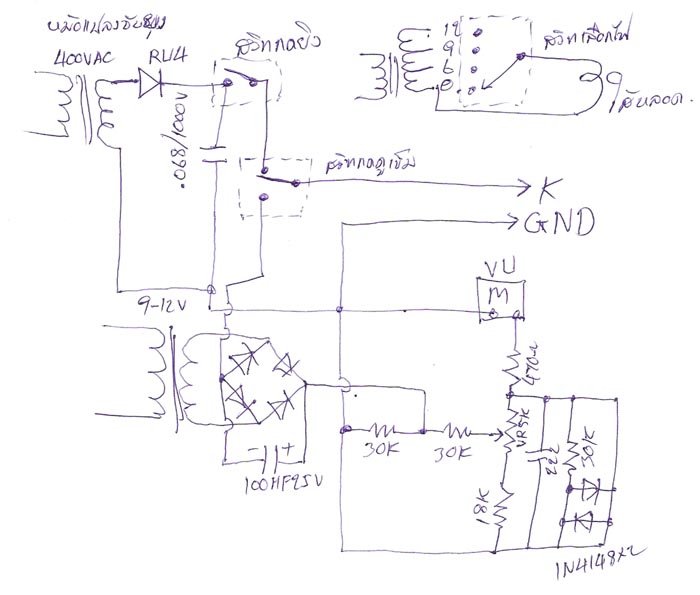 หม้อแปลงช๊อบยุง
400VAC
RU4
สวิทกดยิง
.068/1000V
12
9
6
0
สวิทเลือกไฟ
ไส้หลอด.
สวิทกดดูเข็ม
K
GND
9-12V
VU
M
470Ω
30K
30K
VR5K
222
30K
18K
100MF25V
1N4148x2